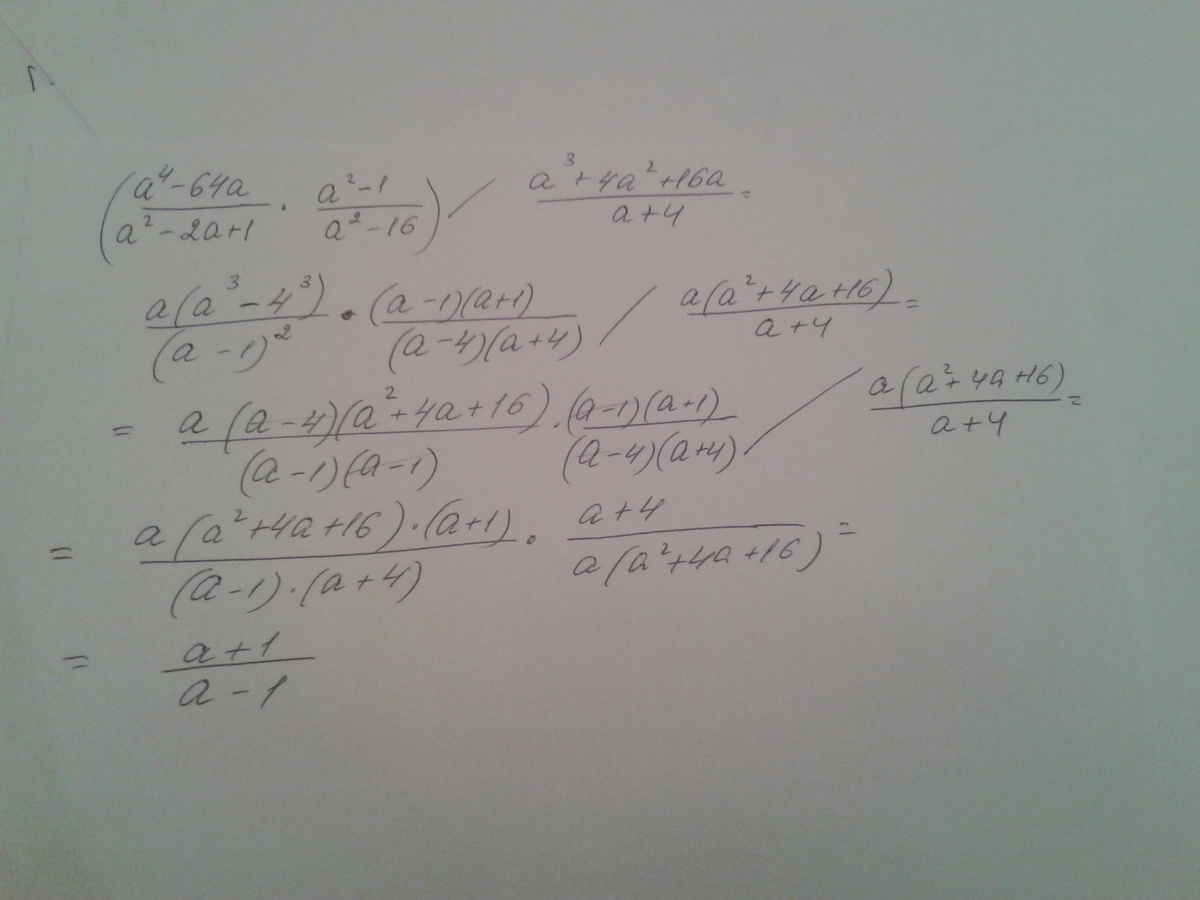 (a⁴-64a / a²-2a+1 · a²-1 / a²-16) / a³+4a²+16a / a+4 =
a(a³-4³) / (a-1)² · (a-1)(a+1) / (a-4)(a+4) / a(a²+4a+16) / a+4 =
= a(a-4)(a²+4a+16) / (a-1)(a-1) · (a-1)(a+1) / (a-4)(a+4) / a(a²+4a+16) / a+4 =
= a(a²+4a+16)·(a+1) / (a-1)·(a+4) · a+4 / a(a²+4a+16) =
= a+1 / a-1